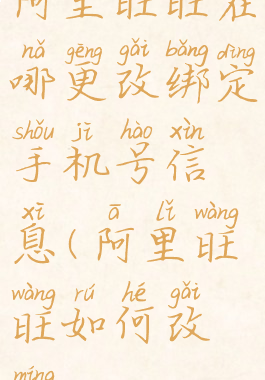 阿里旺旺在
nǎ gēng gǎi bǎng dìng
哪更改绑定
shǒu jī hào xìn
手机号信
xī ā lǐ wàng
息(阿里旺
wàng rú hé gǎi
旺如何改
míng